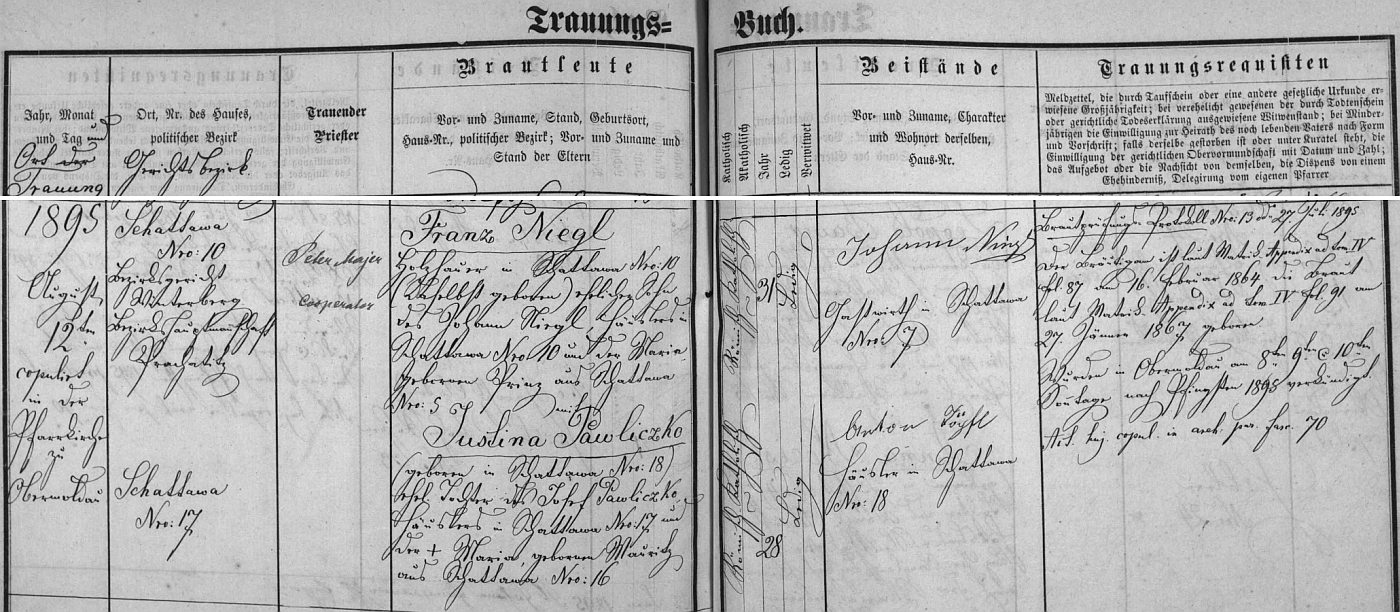 Trauungs=
Buch.
Jahr, Monat
und Tag und
Ort der
Trauung
Ort, Nr. des Hauses,
politischer Bezirk
Gerichtsbezirk.
Trauender
Priester
Brautleute
Vor- und Zuname, Stand, Geburtsort,
Haus-Nr., politischer Bezirk; Vor- und Zuname und
Stand der Eltern
Katholisch
Akatholisch
Jahr
Ledig
Verwitwet
Beistände
Vor- und Zuname, Charakter
und Wohnort derselben,
Haus-Nr.
Trauungsrequisiten
Meldzettel, die durch Taufschein oder eine andere gesetzliche Urkunde er-
wiesene Großjährigkeit; bei verehelicht gewesenen der durch Todtenschein
oder gerichtliche Todeserklärung ausgewiesene Witwenstand; bei Minder-
jährigen die Einwilligung zur Heirath des noch lebenden Vaters nach Form
und Vorschrift; falls derselbe gestorben ist oder unter Kuratel steht, die
Einwilligung der gerichtlichen Obervormundschaft mit Datum und Zahl;
das Aufgebot oder die Nachsicht von demselben, die Dispens von einem
Ehehinderniß, Delegirung vom eigenen Pfarrer
1895
August
12ten
copuliert
in der
Pfarrkirche
zu
Obermoldau
Schattawa
Nro: 10
Bezirksgericht
Winterberg
Bezirkshauptmannschaft
Prachatitz
Schattawa
Nro: 17
Peter Majer
Cooperator
Franz Niegl
Holzhauer in Schattawa Nro: 10
(daselbst geboren) ehelicher Sohn
des Johann Niegl, Häuslers in
Schattawa Nro: 10 und der Maria
geborenen Prinz aus Schattawa
Nro: 5
mit
Justina Pawliczko
(geboren in Schattawa Nro: 18)
ehel. Tochter des Josef Pawliczko,
Häuslers in Schattawa Nro: 17 und
der + Maria, geborenen Mauritz
aus Schattawa Nro: 16
Römisch katholisch
31
Ledig
Römisch katholisch
28
Ledig
Johann
Gastwirth in Schattawa
Nro: 7
Anton
Häusler in Schattawa
Nro: 18
Brautprüfungs-Protokoll Nro: 13 dto 27. Juli 1895
Der Bräutigam ist laut Matrik Appendix ad tom IV
fol. 87 am 16. Februar 1864 die Braut
laut Matrik Appendix ad tom IV fol. 91 am
27. Jänner 1867 geboren
Wurden in Obermoldau am 8ten 9ten & 10ten
Sonntage nach Pfingsten 1895 verkündigt.
Act. huj. copul. in arch. par. fasc. 70